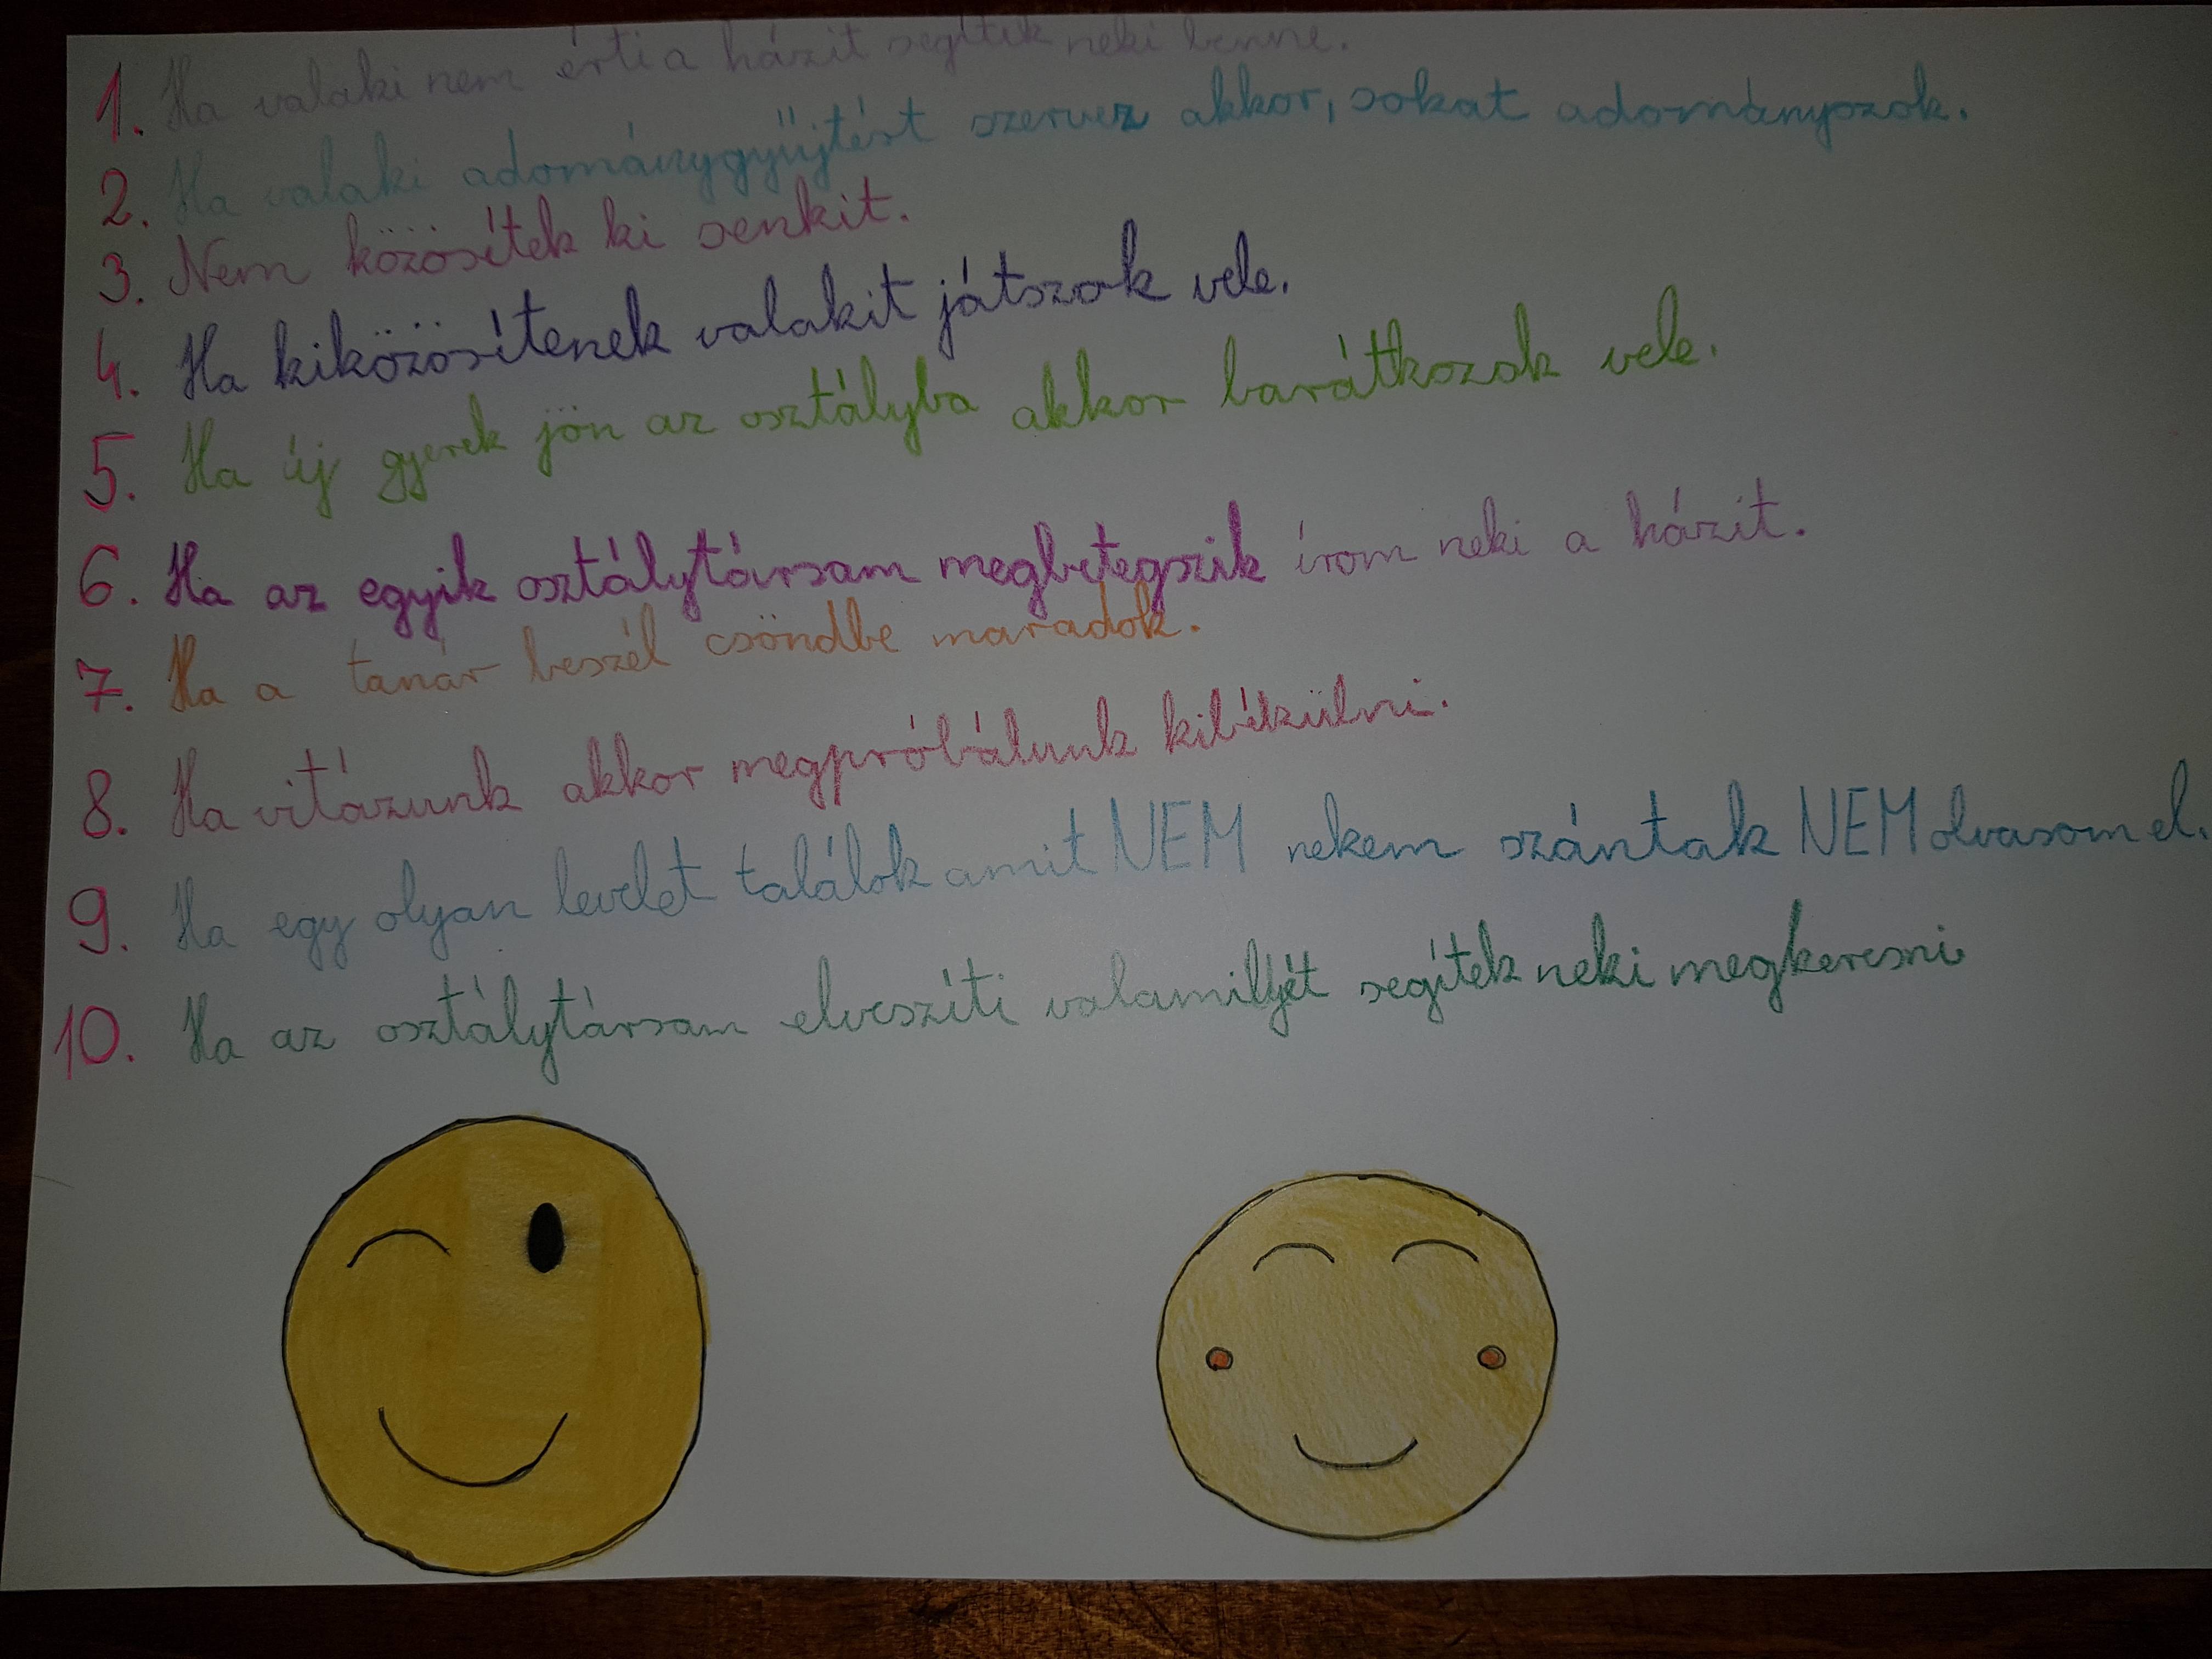 1. Ha valaki nem érti a házit segítek neki benne.
2. Ha valaki adománygyűjtést szervez akkor, sokat adományozok.
3. Nem közösítek ki senkit.
4. Ha kiközösítenek valakit játszok vele.
5. Ha új gyerek jön az osztályba akkor barátkozok vele.
6. Ha az egyik osztálytársam megbetegszik írom neki a házit.
7. Ha a tanár beszél csöndbe maradok.
8. Ha vitázunk akkor megpróbálunk kibékülni.
9. Ha egy olyan levelet találok amit NEM nekem szántak NEM olvasom el.
10. Ha az osztálytársam elveszíti valamilyét segítek neki megkeresni